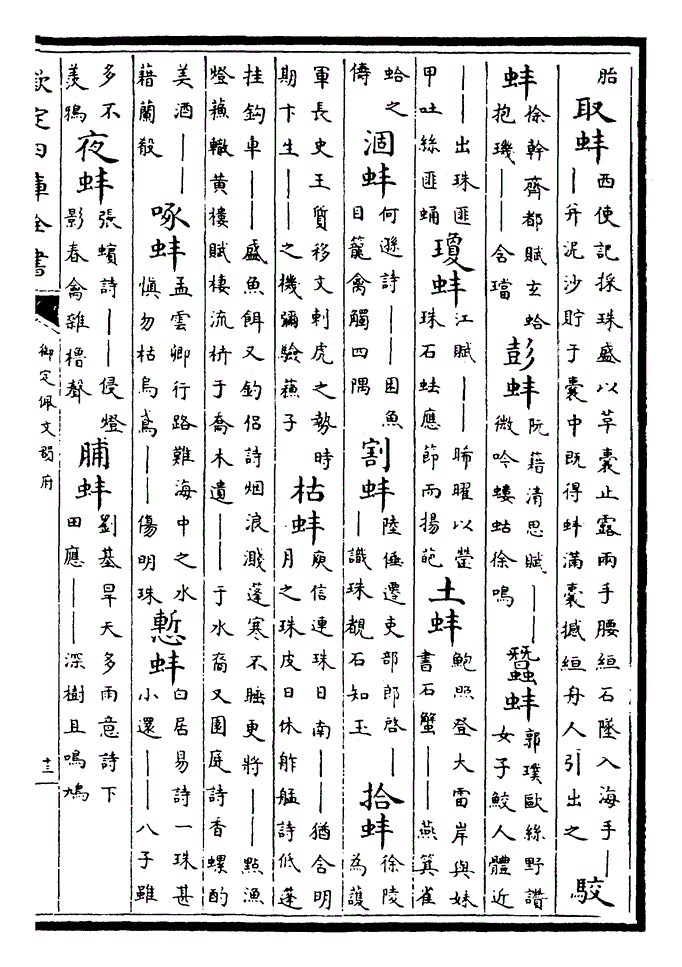 胎
取蚌
西使記採珠盛以革囊止露兩手腰絙石墜入海手—
—并泥沙貯于囊中既得蚌滿囊撼絙舟人引出之
駮
蚌
徐幹齊都賦玄蛤
抱璣——含璫
彭蚌
阮籍清思賦——
微吟螻蛄徐鳴
蠶蚌
郭璞歐絲野讚
女子鮫人體近
——出珠匪
甲吐絲匪蛹
瓊蚌
江賦——晞曜以瑩
珠石蚨應節而揚葩
土蚌
鮑照登大雷岸與妹
書石蟹——燕箕雀
蛤之
傳
涸蚌
何遜詩——困魚
目籠禽觸四隅
割蚌
陸倕遷吏部郎啓—
—識珠覩石知玉
拾蚌
徐陵
為護
軍長史王質移文刺虎之勢時
期卞生——之機彌驗蘓子
枯蚌
庾信連珠日南——猶含明
月之珠皮日休舴艋詩低蓬
挂釣車——盛魚餌又釣侶詩烟浪濺蓬寒不睡更將——點漁
燈蘓轍黄樓賦棲流枿于喬木遺——于水裔又園庭詩香螺酌
美酒——
藉蘭殽
啄蚌
孟雲卿行路難海中之水
慎勿枯烏鳶——傷明珠
慙蚌
白居易詩一珠甚
小還——八子雖
多不
羨鴉
夜蚌
張蠙詩——侵燈
影春禽雜櫓聲
脯蚌
劉基旱天多雨意詩下
田應——深樹且鳴鳩
欽定四庫全書
御定佩文韻府
十三